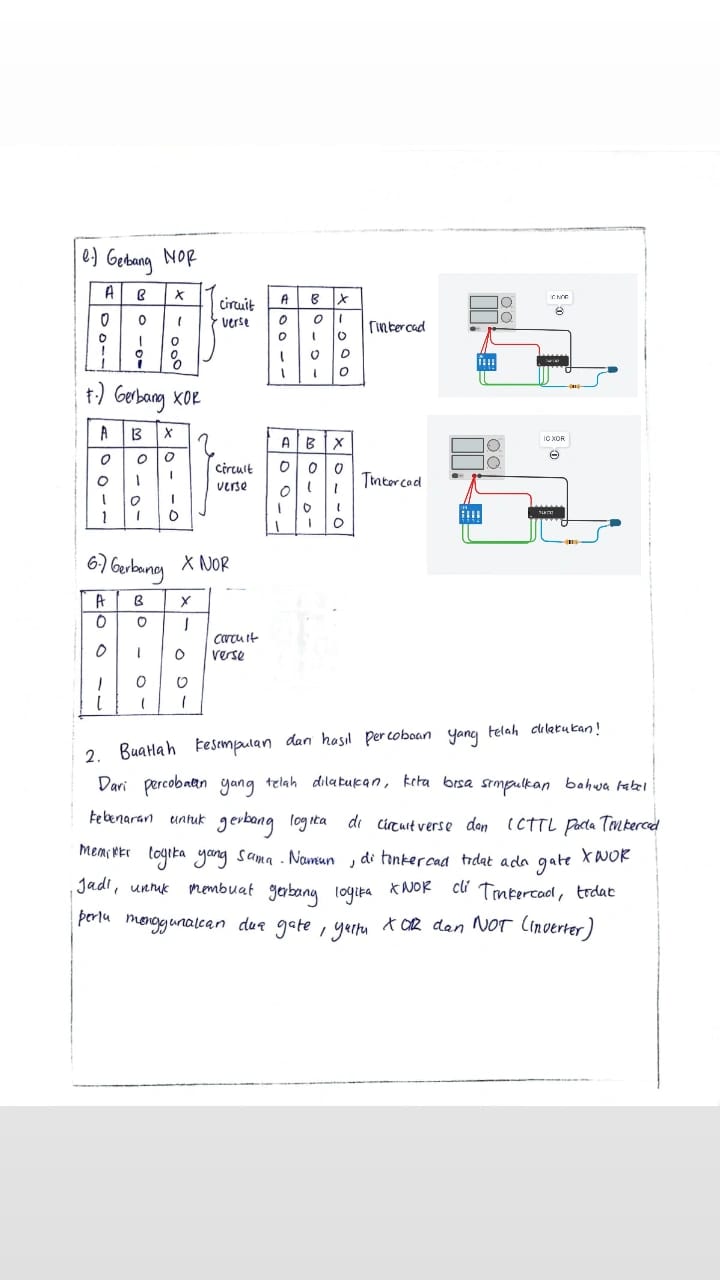 e.) Gerbang NOR
A B X
0 0 1
0 1 0
1 0 0
1 1 0
circuit
verse
A B X
0 0 1
0 1 0
1 0 0
1 1 0
Tinkercad
IC NOR
f.) Gerbang XOR
A B X
0 0 0
0 1 1
1 0 1
1 1 0
circuit
verse
A B X
0 0 0
0 1 1
1 0 1
1 1 0
Tinkercad
IC XOR
G.) Gerbang X NOR
A B X
0 0 1
0 1 0
1 0 0
1 1 1
circuit
verse
2. Buatlah kesimpulan dan hasil percobaan yang telah dilakukan!
Dari percobaan yang telah dilakukan, kita bisa simpulkan bahwa tabel
kebenaran untuk gerbang logika di circuitverse dan ICTTL pada Tinkercad
Memiliki logika yang sama. Namun, di tinkercad tidat ada gate XNOR
Jadi, untuk membuat gerbang logika XNOR di Tinkercad, tidat
perlu menggunakan dua gate, yaitu XOR dan NOT (Inverter)